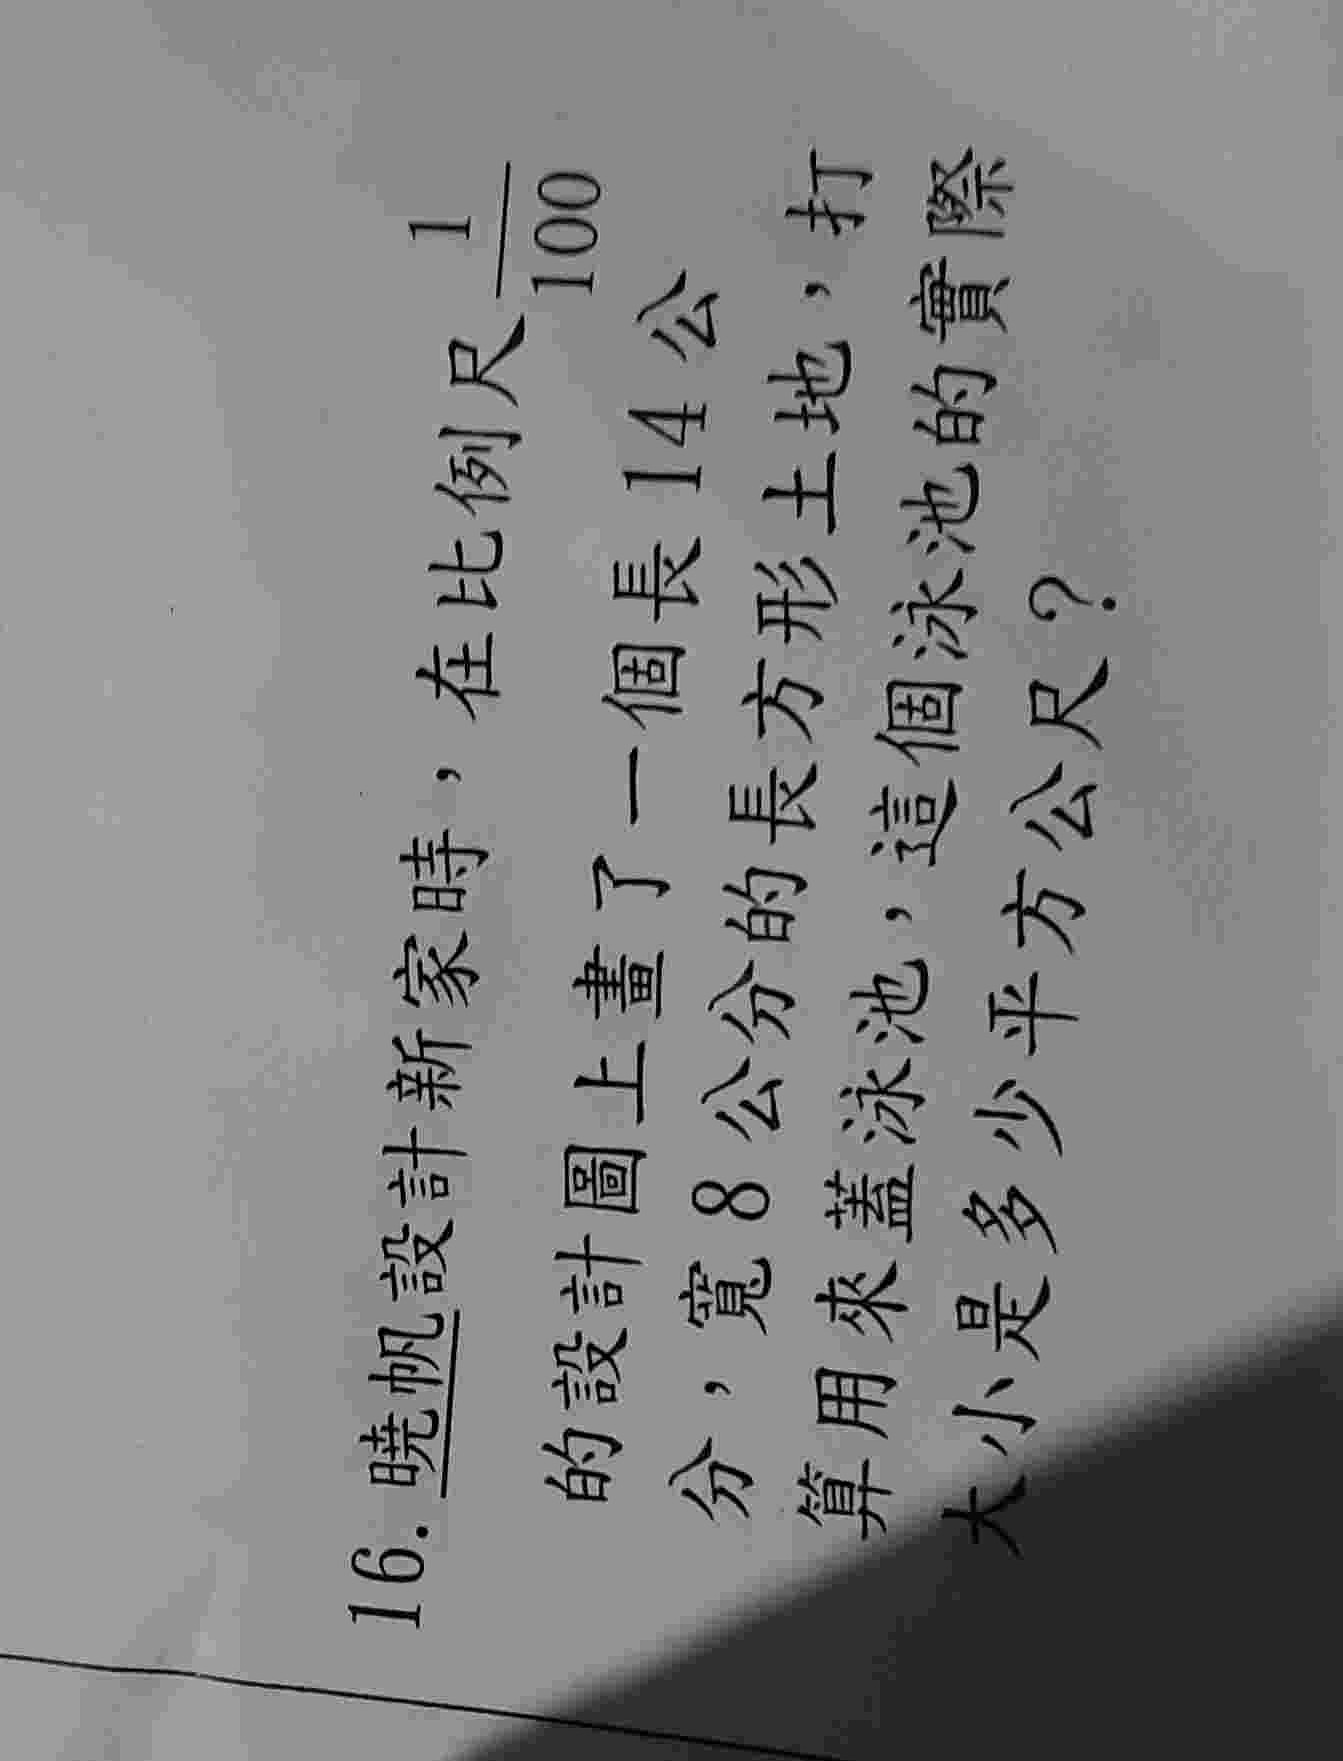 16. 曉帆設計新家時，在比例尺 1/100
的設計圖上畫了一個長14公
分，寬8公分的長方形土地，打
算用來蓋泳池，這個泳池的實際
大小是多少平方公尺？